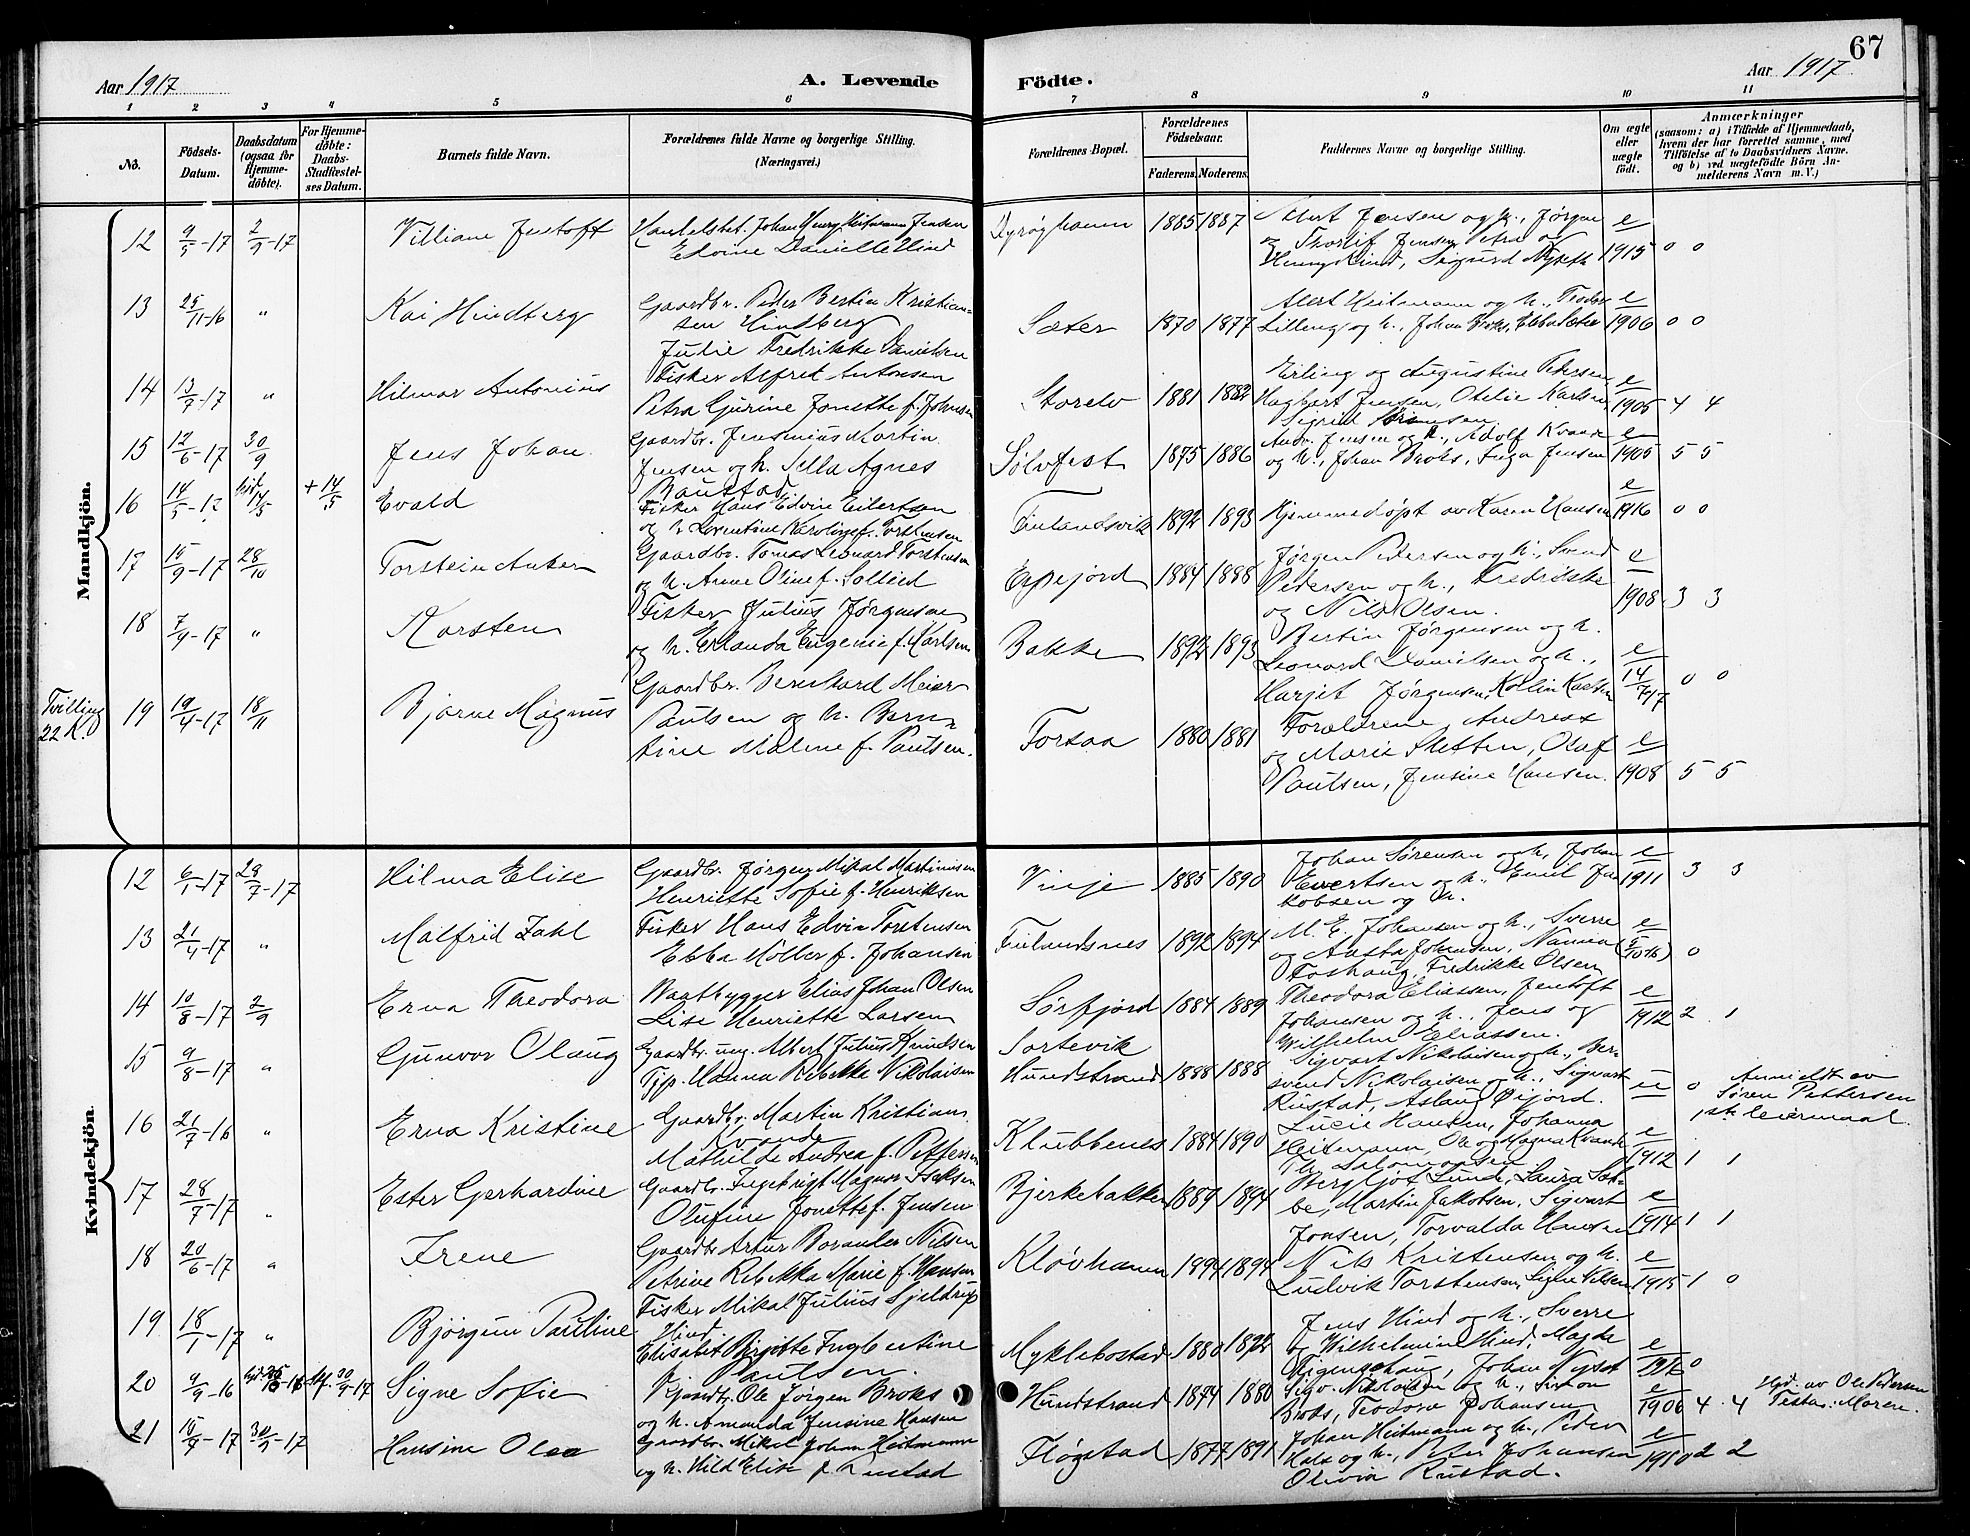 67
Aar 1917
A. Levende
Födte.
Aar 1917
1 2 3 4 5 6 7 8 9 10 11
No.
Födsels-
Datum.
Daabsdatum
(ogsaa for
Hjemme-
døbte).
For Hjemme-
døbte:
Daabs-
Stadfæstel-
ses Datum.
Barnets fulde Navn.
Forældrenes fulde Navne og borgerlige Stilling.
(Næringsvei.)
Forældrenes Bopæl.
Forældrenes
Födselsaar.
Faderens. Moderens.
Faddernes Navne og borgerlige Stilling.
Om ægte
eller
uægte
født.
Anmærkninger
(saasom: a) i Tilfælde af Hjemmedaab,
hvem der har forrettet samme, med
Tilføielse af to Daabsvidners Navne.
og b) ved uægtefødte Börn An-
melderens Navn m. V.)
Mandkjön.
12 9/5-17 2/9-17 Villiam Jentoft
Johan Henry Heitmann Jensen
Dyrøyhamn 1885 1887
Albert Jensen og h., Jørgen
og Thorlif Jensen, Petra og
Henry Hind, Sigurd
e 1915 0 0
13 25/11-16 " Kai Hindberg
Gaardbr. Peder Bertin Kristian-
sen Hindberg
Julie Fredrikke Danielsen
Sæter 1870 1877
Albert Heitmann og h., Teodor
Lilleng og h., Johan Broks, Ebba Sæter
e 1906 0 0
14 13/7-17 " Hilmar Antonius
Fisker Alfred Antonsen
Petra Gurine Jonette f. Johnsen
Storelv 1881 1882
Erling og Augustine Petersen
Hagbart Jensen, Otelie Karlsen,
Sigrid
e 1905 4 4
15 12/6-17 30/9 Jens Johan
Gaardbr. Jensenius Martin
Jensen og h. Sella Agnes
Baustad
Sølvfest 1875 1886
Andr. Jensen og h., Adolf Kvande
og h., Johan Broks, Inga Jensen
e 1905 5 5
16 14/5-17 14/5 + 14/5 Evald
Fisker Hans Edvin Eilertsen
og h. Lorentine Karoline f. Torstensen
Finlandsvik 1892 1893
Hjemmedøpt av Karen Hansen
e 1916 0 0
17 15/9-17 28/10 Torstein Anker
Gaardbr. Tomas Leonard Torstensen
og h. Anne Oline f. Sollied
Espejord 1884 1888
Jørgen Pedersen og h., Svend
Pedersen og h., Fredrikke
og Nils Olsen.
e 1908 3 3
18 7/9-17 " Karsten
Fisker Julius Jørgensen
og h. Erlanda Eugenie f. Karlsen
Bakke 1892 1893
Bertin Jørgensen og h.
Leonard Danielsen og h.,
Harjet Jørgensen, Kollin Karlsen
e 14/7 17 0 0
Tvilling
22 K.
19 19/4-17 18/11 Bjarne Magnus
Gaardbr. Bernhard Meier
Paulsen og h. Bern-
tine Malene f. Paulsen.
Forsaa 1880 1881
Forældrene, Andreas
og Marie Sletten, Olaf
Paulsen, Jensine Hansen.
e 1908 5 5
Kvindekjön.
12 6/1-17 29/7-17 Hilma Elise
Gaardbr. Jørgen Mikal Martinusen
Henriette Sofie f. Henriksen
Vinje 1885 1890
Johan Sørensen og h., Johan
Evertsen og h., Emil Ja-
kobsen og h.
e 1911 3 3
13 21/4-17 " Malfrid Zahl
Fisker Hans Edvin Torstensen
Ebba Møller f. Johansen
Finlandsnes 1892 1894
M. E. Johansen og h., Sverre
og Aasta Johansen, Nanna
Foshaug, Fredrikke Olsen
e 0
14 10/8-17 2/9 Erna Theodora
Baatbygger Elias Johan Olsen
Lise Henriette Larsen
Sørfjord 1884 1889
Theodora Eliassen, Jentoft
Johansen og h., Jens og
Wilhelm Eliassen.
e 1912 2 1
15 9/8-17 " Gunvor Olaug
Gaardbr. ung. Albert Julius Knudsen
Tjp. Hanna Rebekke Nikolaisen
Sortevik
Hundstrand 1888 1888
Sigvart Nikolaisen og h., Ber-
svend Nikolaisen og h., Sigvart
Rustad, Aslaug Øijord.
u 0
Anmeldt av
Søren Pettersen
1ste leiermaal.
16 21/7-16 " Erna Kristine
Gaardbr. Martin Kristian
Kvande
Mathilde Andrea f. Pettersen
Klubbenes 1884 1890
Lucie Hansen, Johanna
Heitmann, O. og Magna Kvande
Th. Salomonsen
e 1912 1 1
17 28/7-17 " Ester Gerhardine
Gaardbr. Ingebrigt Magnus Isaksen
Olufine Jonette f. Jensen
Bjerkebakken 1887 1894
Bergljot Lunde, Laura Sør-
be, Martin Jakobsen, Sigvart
Jensen, Torvalda Hansen
e 1914 1 1
18 20/6-17 " Irene
Gaardbr. Artur Nilsen
Petrine Rebekka Marie f. Hansen
Kløvhamn 1894 1894
Nils Kristensen og h.
Ludvik Torstensen, Signe Nilsen
e 1915 1 0
19 18/1-17 " Bjørgun Pauline
Fisker Mikal Julius Sjeldrup
Hind.
Elisabet Birgitte Ingbertine
Paulsen.
Myklebostad 1880 1892
Jens Hind og h., Sverre
og Wilhelmine Hind, Magde
Johan Nygaard
e 1916 0
20 9/9-16 30/9-17 Signe Sofie
Gaardbr. Ole Jørgen Broks
og h. Amanda Jensine Hansen
Hundstrand 1874 1880
Sigv. Nikolaisen og h., Simon
Broks, Teodora Johansen
e 1906 4 4
Hjd. av Ole Pedersen
Testa. Moren.
21 15/7-17 30/9-17 Hansine Olea
Gaardbr. Mikal Johan Heitmann
og h. Hild Elise f. Rustad
Fløgstad 1877 1891
Johan Heitmann og h., Peder
Hals og h., Peter Johansen
Olivia Rustad.
e 1910 2 2